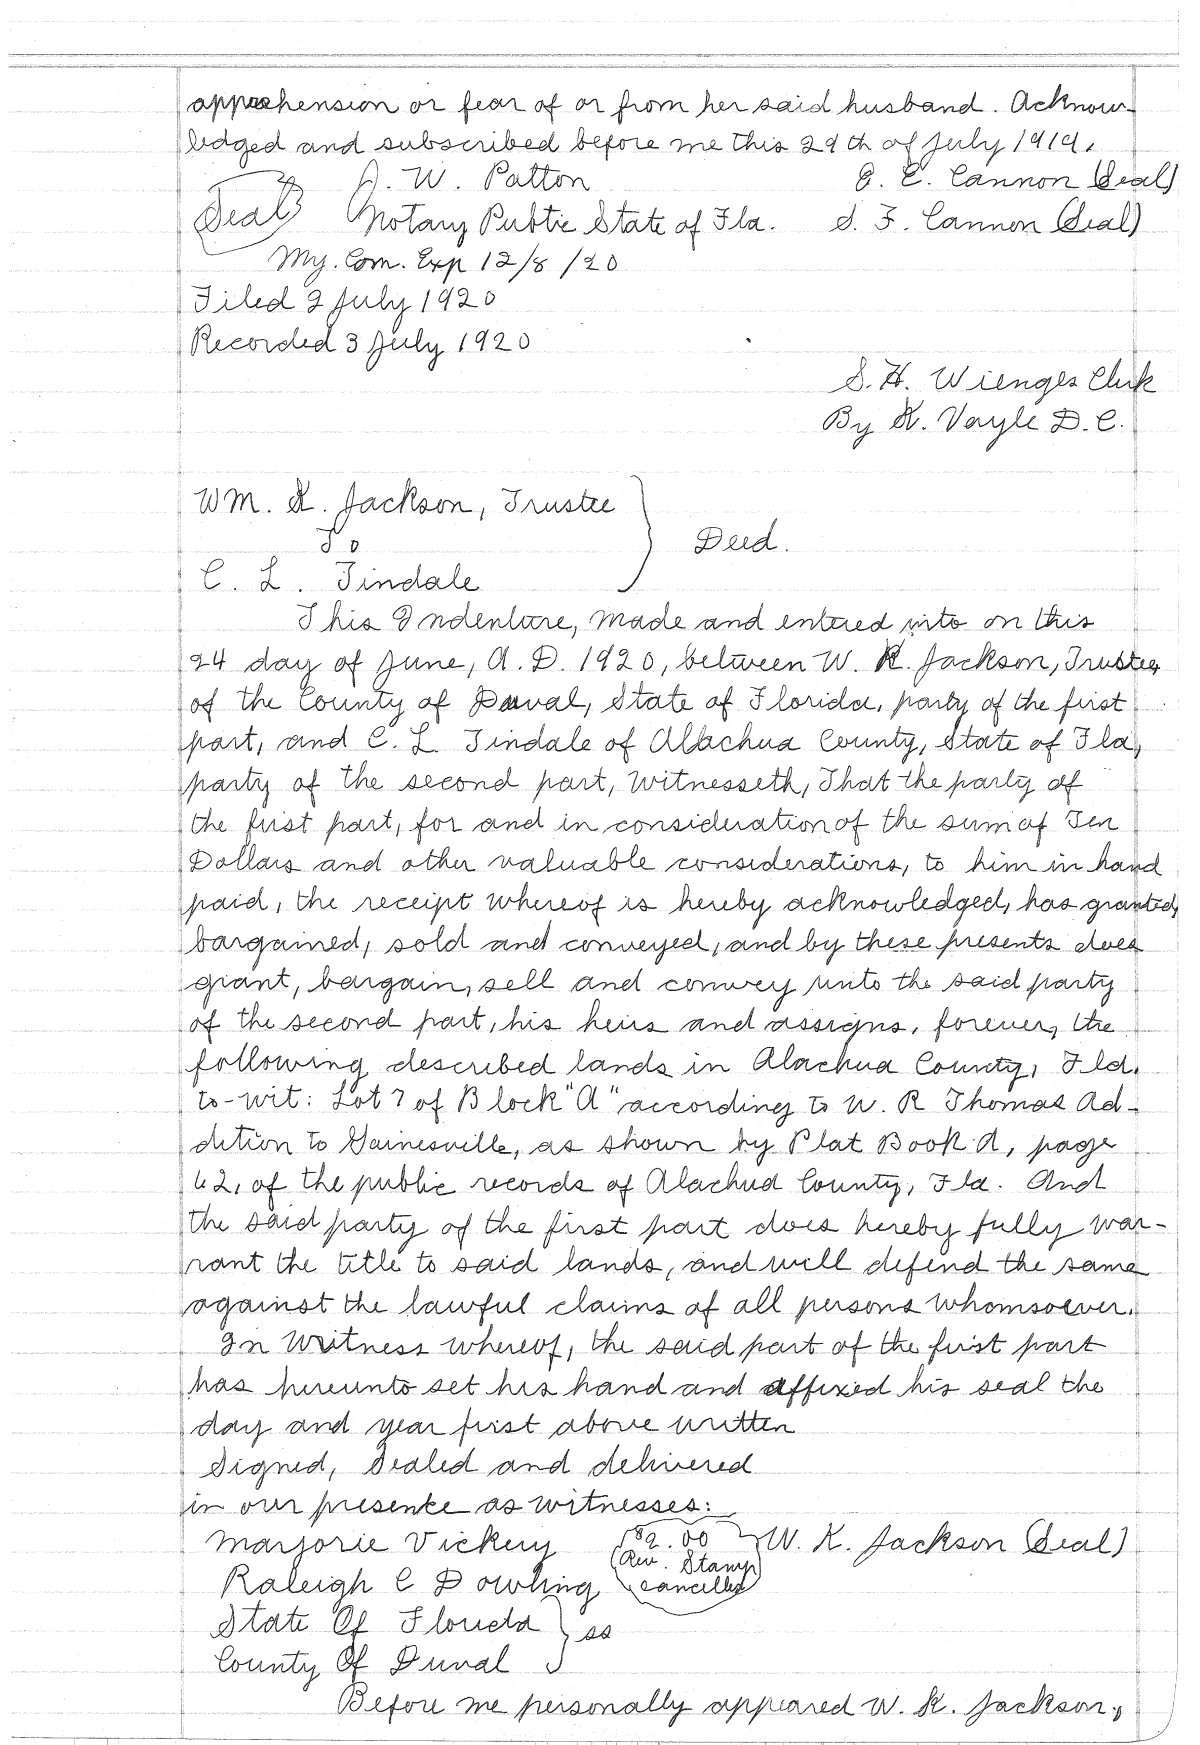 apprehension or fear of or from her said husband. Acknow-
ledged and subscribed before me this 29th of July 1919.
J. W. Patton G. E. Cannon (Seal)
(Seal) Notary Public State of Fla. S. F. Cannon (Seal)
My. Com. Exp 12/8/20
Filed 2 July 1920
Recorded 3 July 1920
S. H. Wienges Clerk
By K. Vayle D. C.
WM. K. Jackson, Trustee
To
Deed.
C. L. Tindale
This Indenture, made and entered into on this
24 day of June, A. D. 1920, between W. K. Jackson, Trustee
of the County of Duval, State of Florida, party of the first
part, and C. L. Tindale of Alachua County, State of Fla,
party of the second part, witnesseth, That the party of
the first part, for and in consideration of the sum of Ten
Dollars and other valuable considerations, to him in hand
paid, the receipt whereof is hereby acknowledged, has granted,
bargained, sold and conveyed, and by these presents does
grant, bargain, sell and convey unto the said party
of the second part, his heirs and assigns, forever, the
following described lands in Alachua County, Fla.
to-wit: Lot 7 of Block "A" according to W. R Thomas Ad-
dition to Gainesville, as shown by Plat Book A, page
62, of the public records of Alachua County, Fla. And
the said party of the first part does hereby fully war-
rant the title to said lands, and will defend the same
against the lawful claims of all persons whomsoever.
In Witness whereof, the said part of the first part
has hereunto set his hand and affixed his seal the
day and year first above written
Signed, Sealed and delivered
in our presence as witnesses:
Marjorie Vickery $2.00 W. K. Jackson (Seal)
Rev. Stamp
Raleigh C Dowling cancelled
State Of Florida } ss
County Of Duval
Before me personally appeared W. K. Jackson,